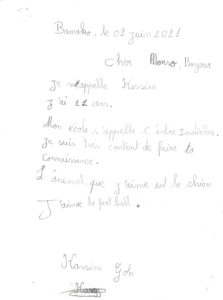 Bamako, le 02 juin 2021
Cher Alonso, Bonjour
Je m'appelle Kassim
J'ai 11 ans.
Mon école s'appelle
Je suis très content de faire ta
connaissance.
L'animal que j'aime est le chien
J'aime le foot ball.
Kassim Goh